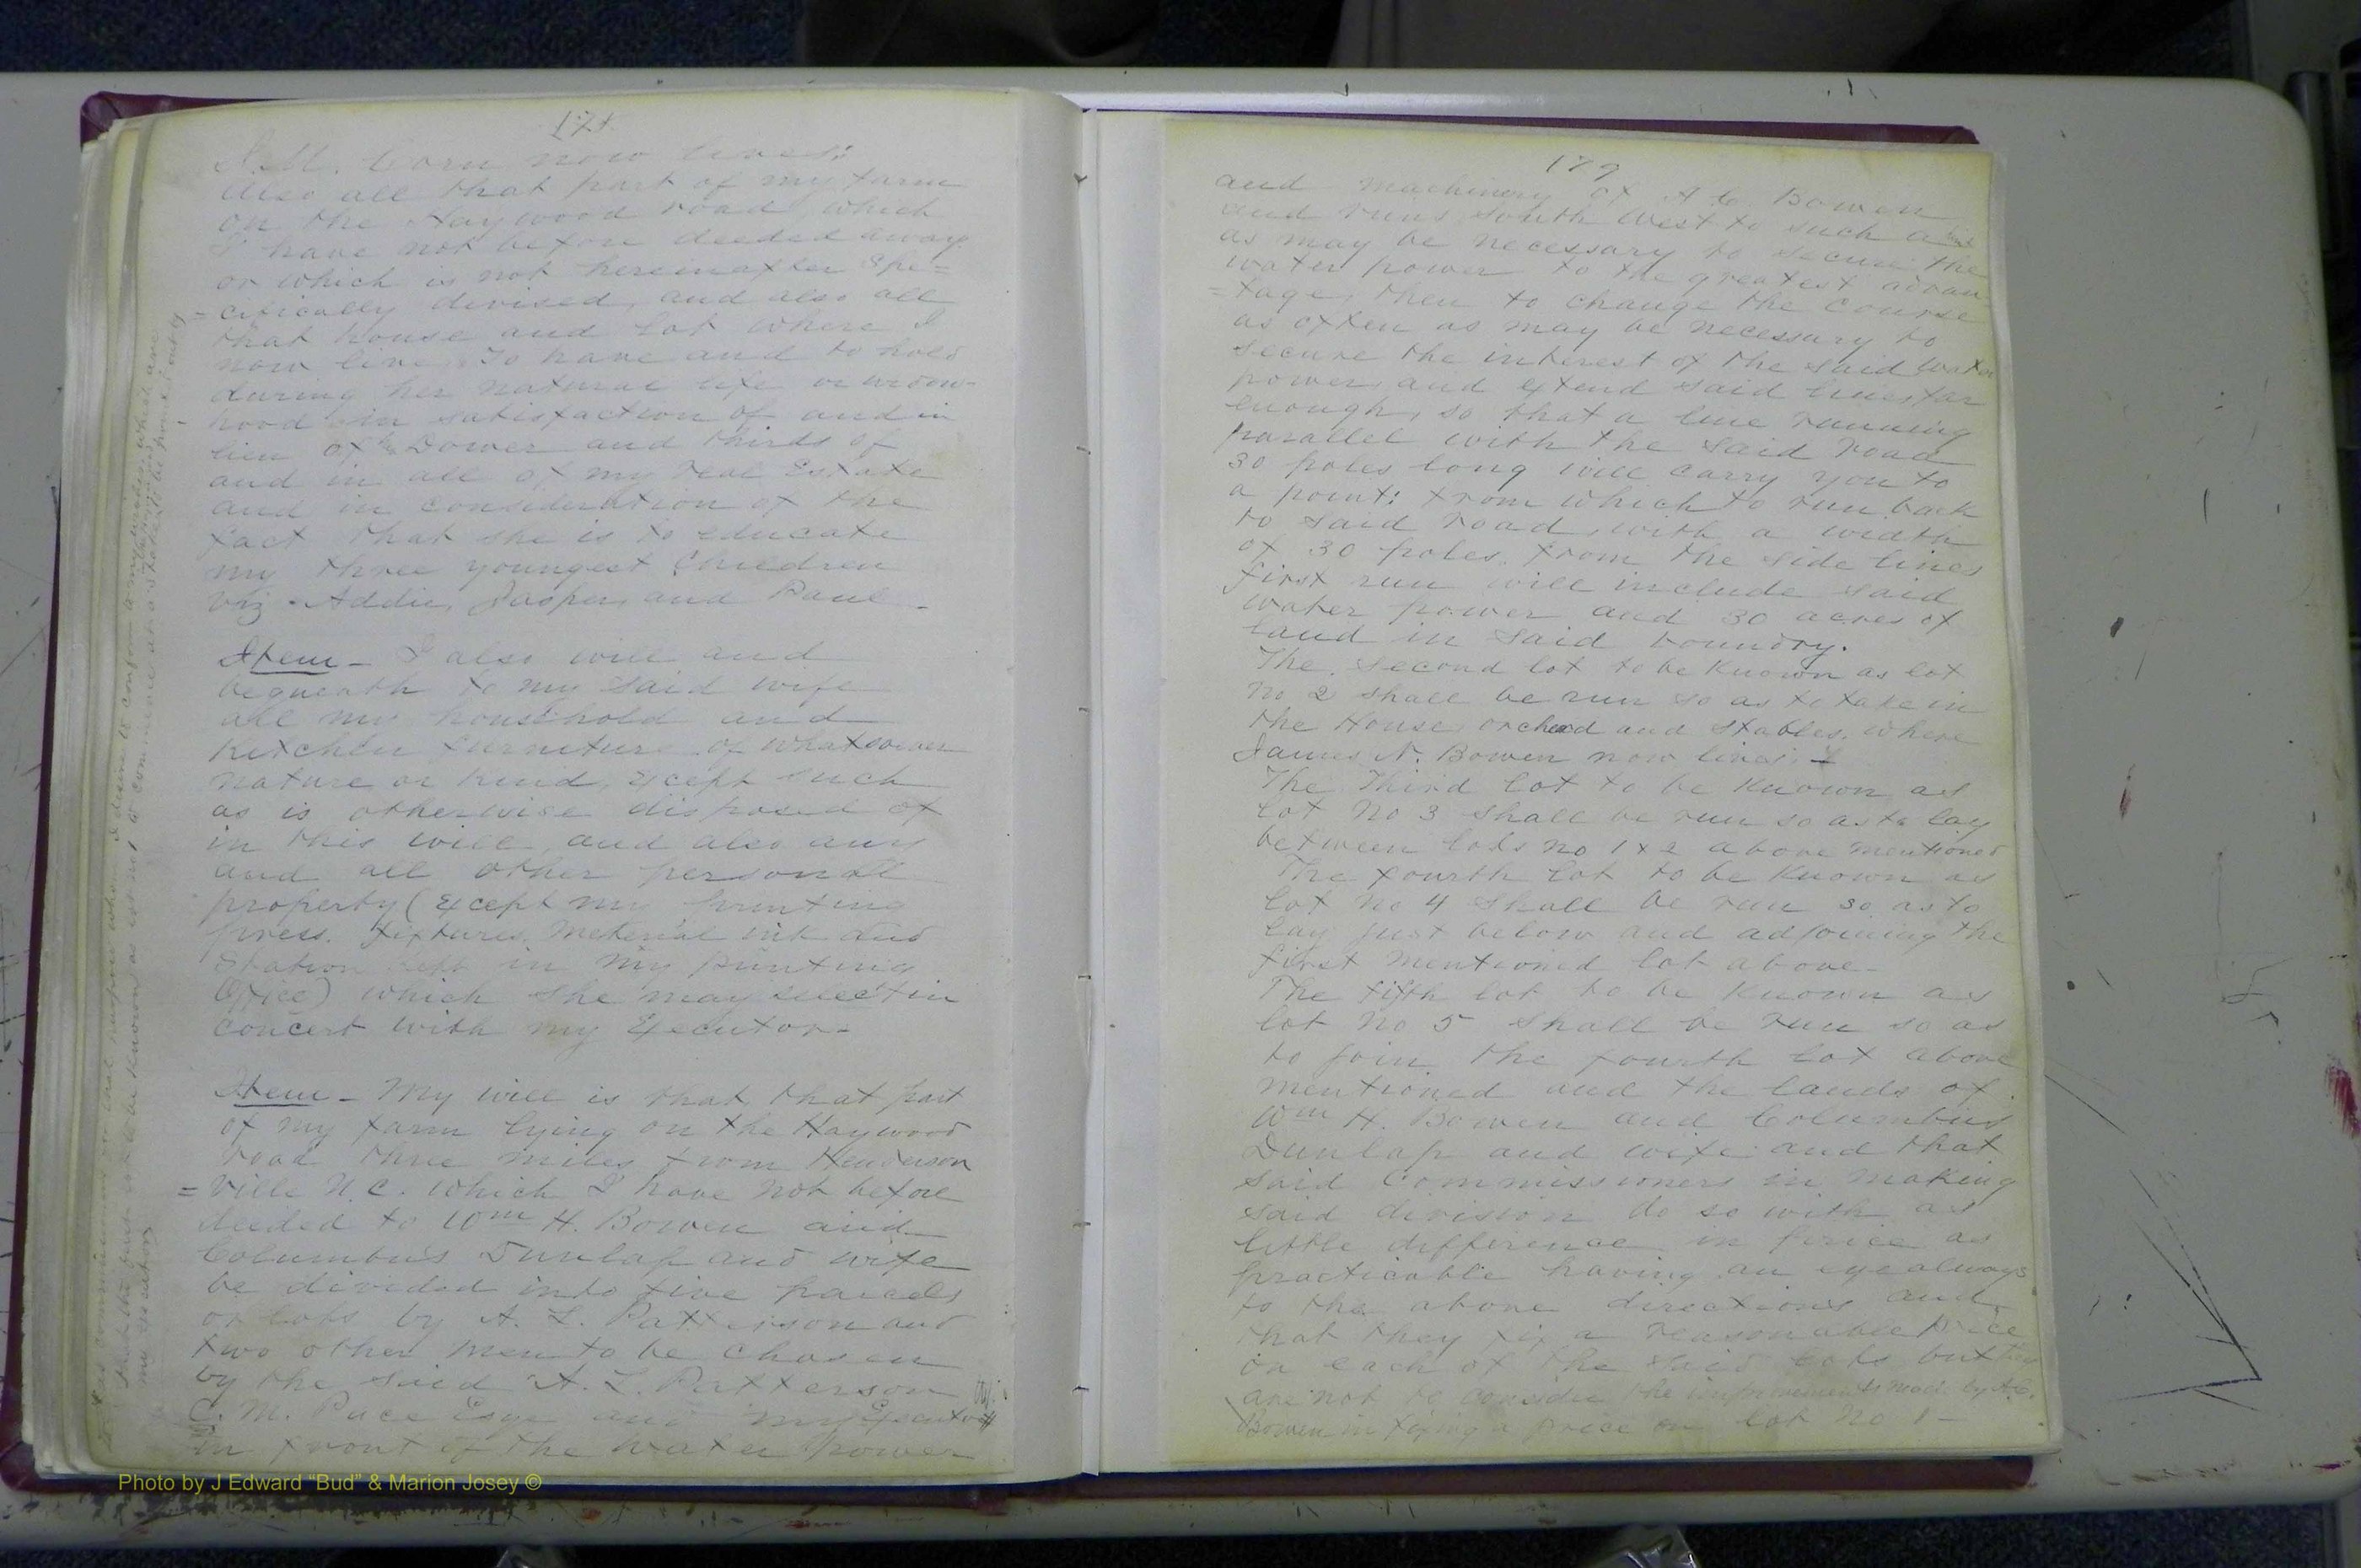 178
J. M. Corn now lives;
Also all that part of my farm
on the Haywood road, which
I have not before deeded away
or which is not hereinafter Spe=
=cifically devised, and also all
that house and lot where I
now live. To have and to hold
during her natural life or widow-
hood in satisfaction of and in
lieu of Dower and thirds of
and in all of my real Estate
and in consideration of the
fact that she is to educate
my three youngest Children
viz - Addie, Jasper, and Paul -
Item - I also will and
bequeath to my said wife
all my household and
Kitchen furniture of whatsoever
nature or kind, except such
as is otherwise disposed of
in this will, and also any
and all other personal
property (except my printing
press. fixtures, Material ink and
Station kept in my printing
Office) which she may select in
concert with my Executor-
Item - My will is that, that part
of my farm lying on the Haywood
road three miles from Henderson
=ville N.C. which I have not before
deeded to Wm H. Bowen and
Columbus Dunlap and wife
be divided into five parcels
or lots by A. L. Patterson and
two other men to be chosen
by the said A. L. Patterson
C. M. Pace Esqr and my Executor
in front of the water power
as commissioners for that purpose whom I desire to conform
that the first lot to be known as lot no 1 to commence at a stake to be
my executors
179
and machinery of A C. Bowen
and runs South West to such a
as may be necessary to secure the
water power to the greatest advan
=tage, then to change the course
as often as may be necessary to
secure the interest of the said water
power, and extend said lines far
enough, so that a line running
parallel with the said road
30 poles long will carry you to
a point: from which to run back
to said road, with a width
of 30 poles. from the side lines
first run will include said
water power and 30 acres of
land in said boundry.
The second lot to be known as lot
No 2 shall be run so as to take in
the House, orchard and stables, where
James N. Bowen now lives; -
The Third lot to be known as
lot No 3 shall be run so as to lay
between lots no 1 & 2 above mentioned
The fourth lot to be known as
lot No 4 shall be run so as to
lay just below and adjoining the
first mentioned lot above-
The fifth lot to be known as
lot No 5 shall be run so as
to join the fourth lot above
mentioned and the lands of
Wm H. Bowen and Columbus
Dunlap and wife and that
said Commissioners in making
said division do so with as
little difference in price as
practicable having an eye always
to the above directions and
that they fix a reasonable price
on each of the said lots but they
are not to consider the improvements made by A.C.
Bowen in fixing a price on lot No 1 -
Photo by J Edward “Bud” & Marion Josey ©